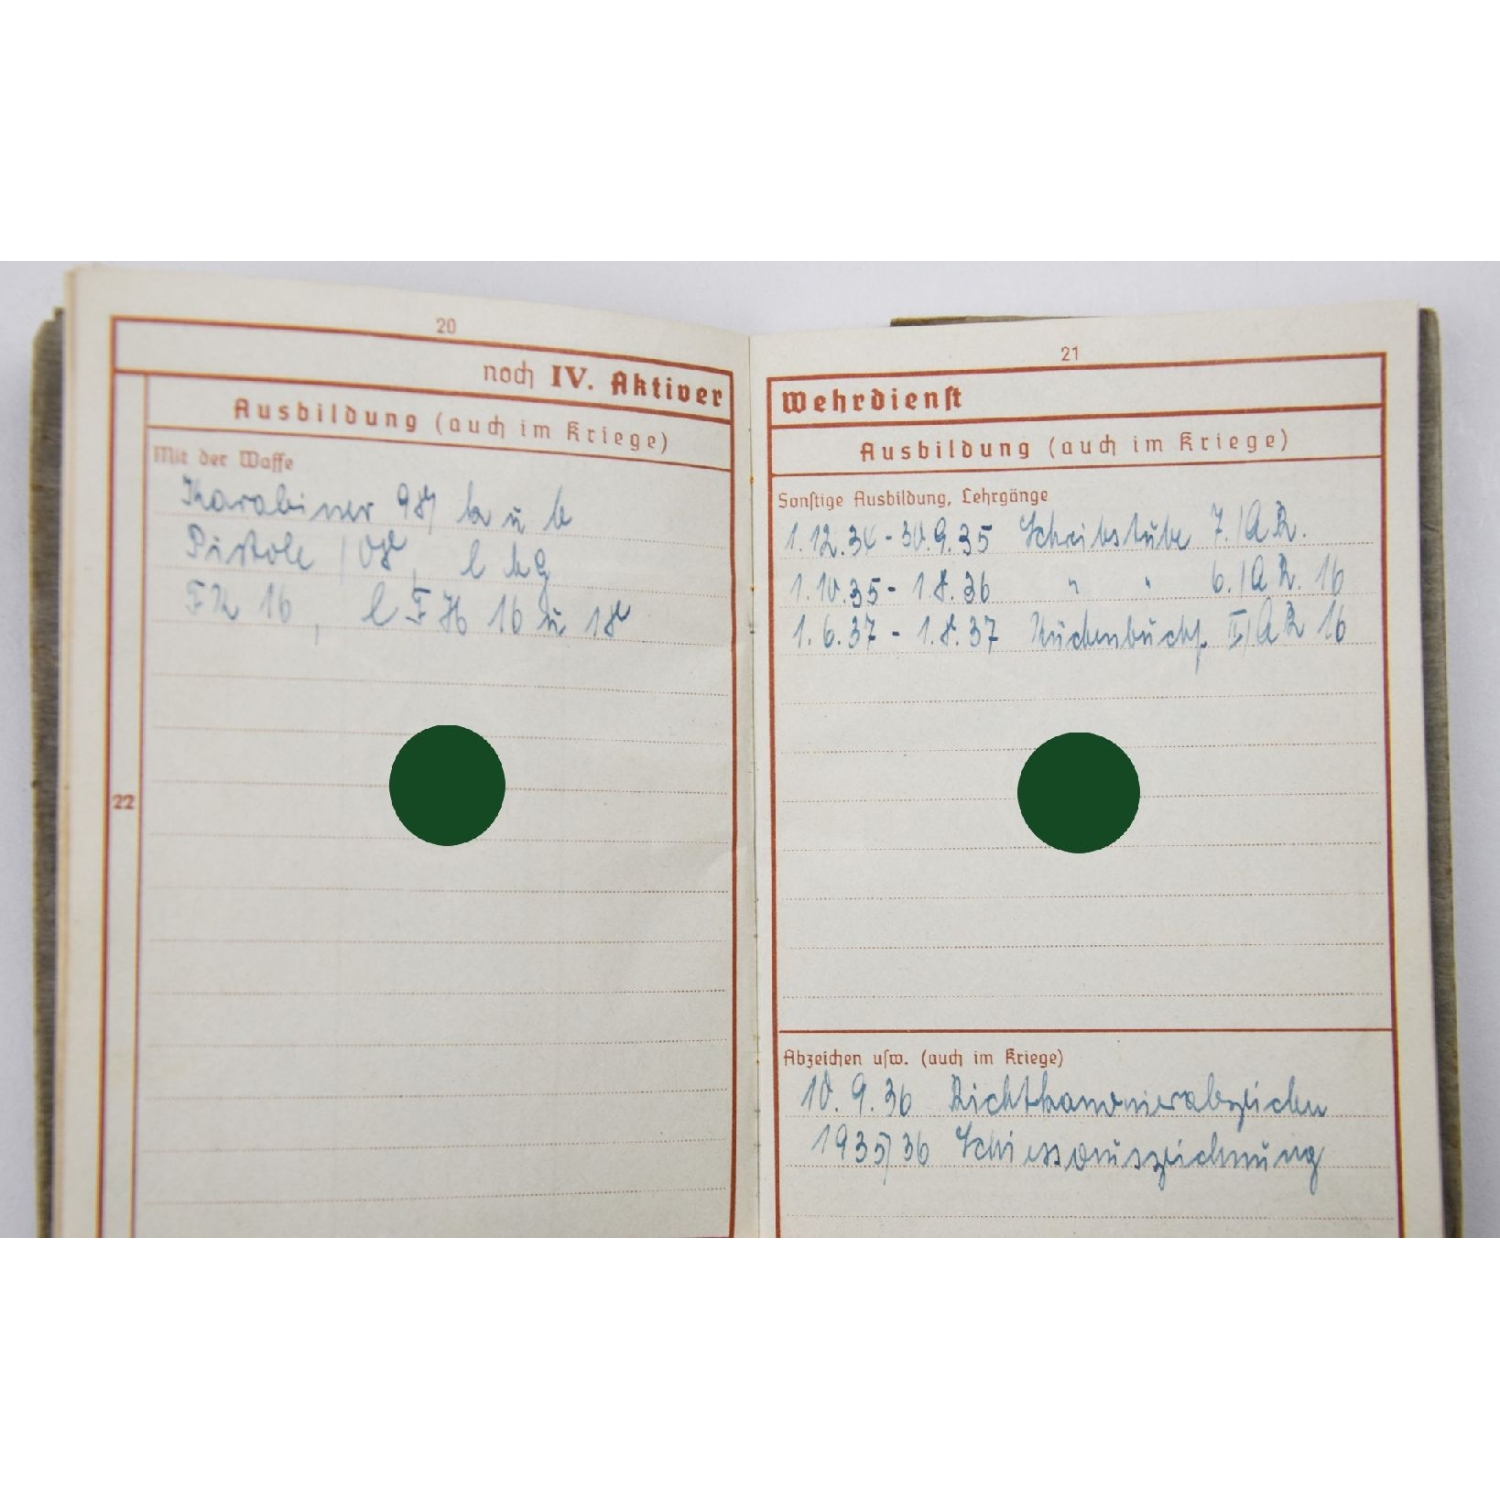 20
noch IV. Aktiver
Ausbildung (auch im Kriege)
Mit der Waffe
Karabiner 98, k u b
Pistole 08, l MG
FK 16, l FH 16 u 18
22
21
Wehrdienst
Ausbildung (auch im Kriege)
Sonstige Ausbildung, Lehrgänge
1.12.34 - 30.9.35 Schreibstube 7./A.R.
1.10.35 - 1.8.36 " " 6./A.R. 16
1.6.37 - 1.8.37 Küchenbuchf. II/A R 16
Abzeichen usw. (auch im Kriege)
10.9.36 Richtkanonierabzeichen
1935/36 Schiessauszeichnung